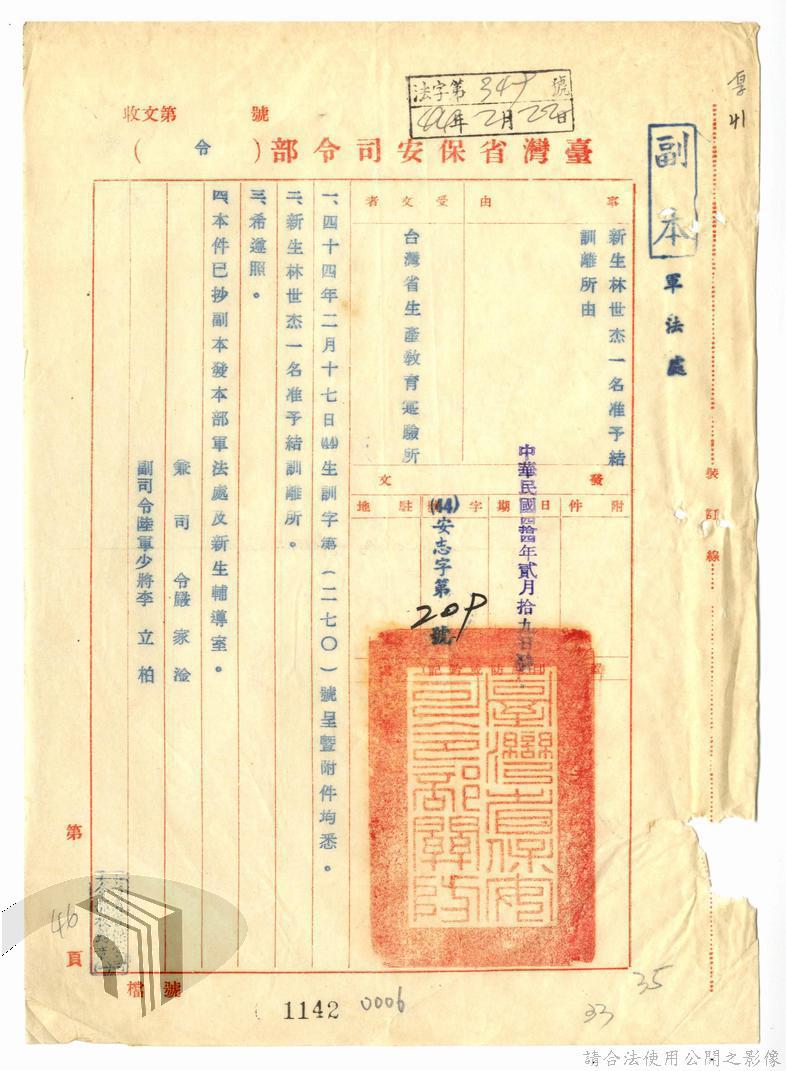 法字第 349 號
44年2月22日
收文第 號
臺灣省保安司令部(令)
副本
軍法處
裝訂線
事由
新生林世杰一名准予結
訓離所由
受文者
台灣省生產教育寔驗所
發文
附件
日期
中華民國四拾四年貳月拾九日
字號
(44)安志字第209號
駐地
一、四十四年二月十七日(44)生訓字第(二七〇)號呈暨附件均悉。
二、新生林世杰一名准予結訓離所。
三、希遵照。
四、本件已抄副本發本部軍法處及新生輔導室。
兼司令嚴家淦
副司令陸軍少將李立柏
臺灣省保安司令部關防
第46頁
檔號
1142
0006
33
35
請合法使用公開之影像